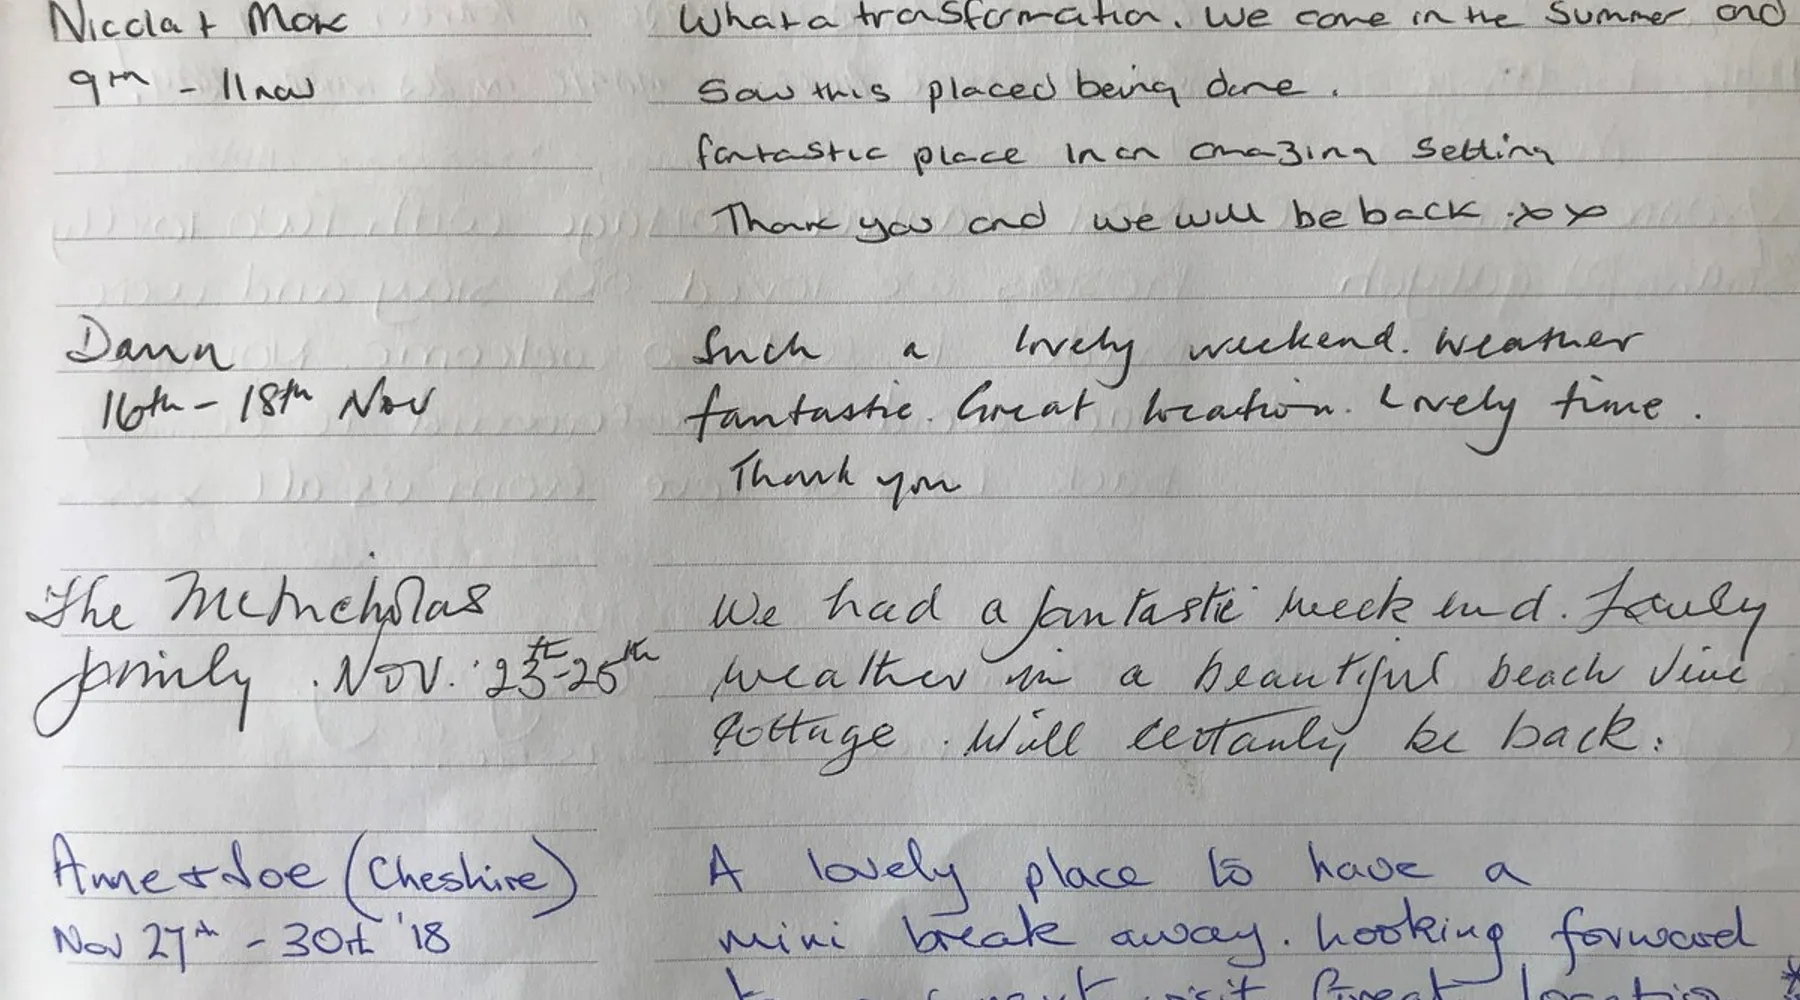 Nicola + Mark
What a transformation. We come in the Summer and
9th - 11 nov
Saw this placed being done.
fantastic place in an amazing setting
Thank you and we will be back xx
Dawn
Such a lovely weekend. Weather
16th - 18th Nov
fantastic. Great location. Lovely time.
Thank you
The McNicholas
We had a fantastic week end. Lovely
family. Nov. 23th-25th
weather in a beautiful beach view
Cottage. Will certainly be back.
Anne + Joe (Cheshire)
A lovely place to have a
Nov 27th - 30th '18
mini break away. Looking forward
visit Great location